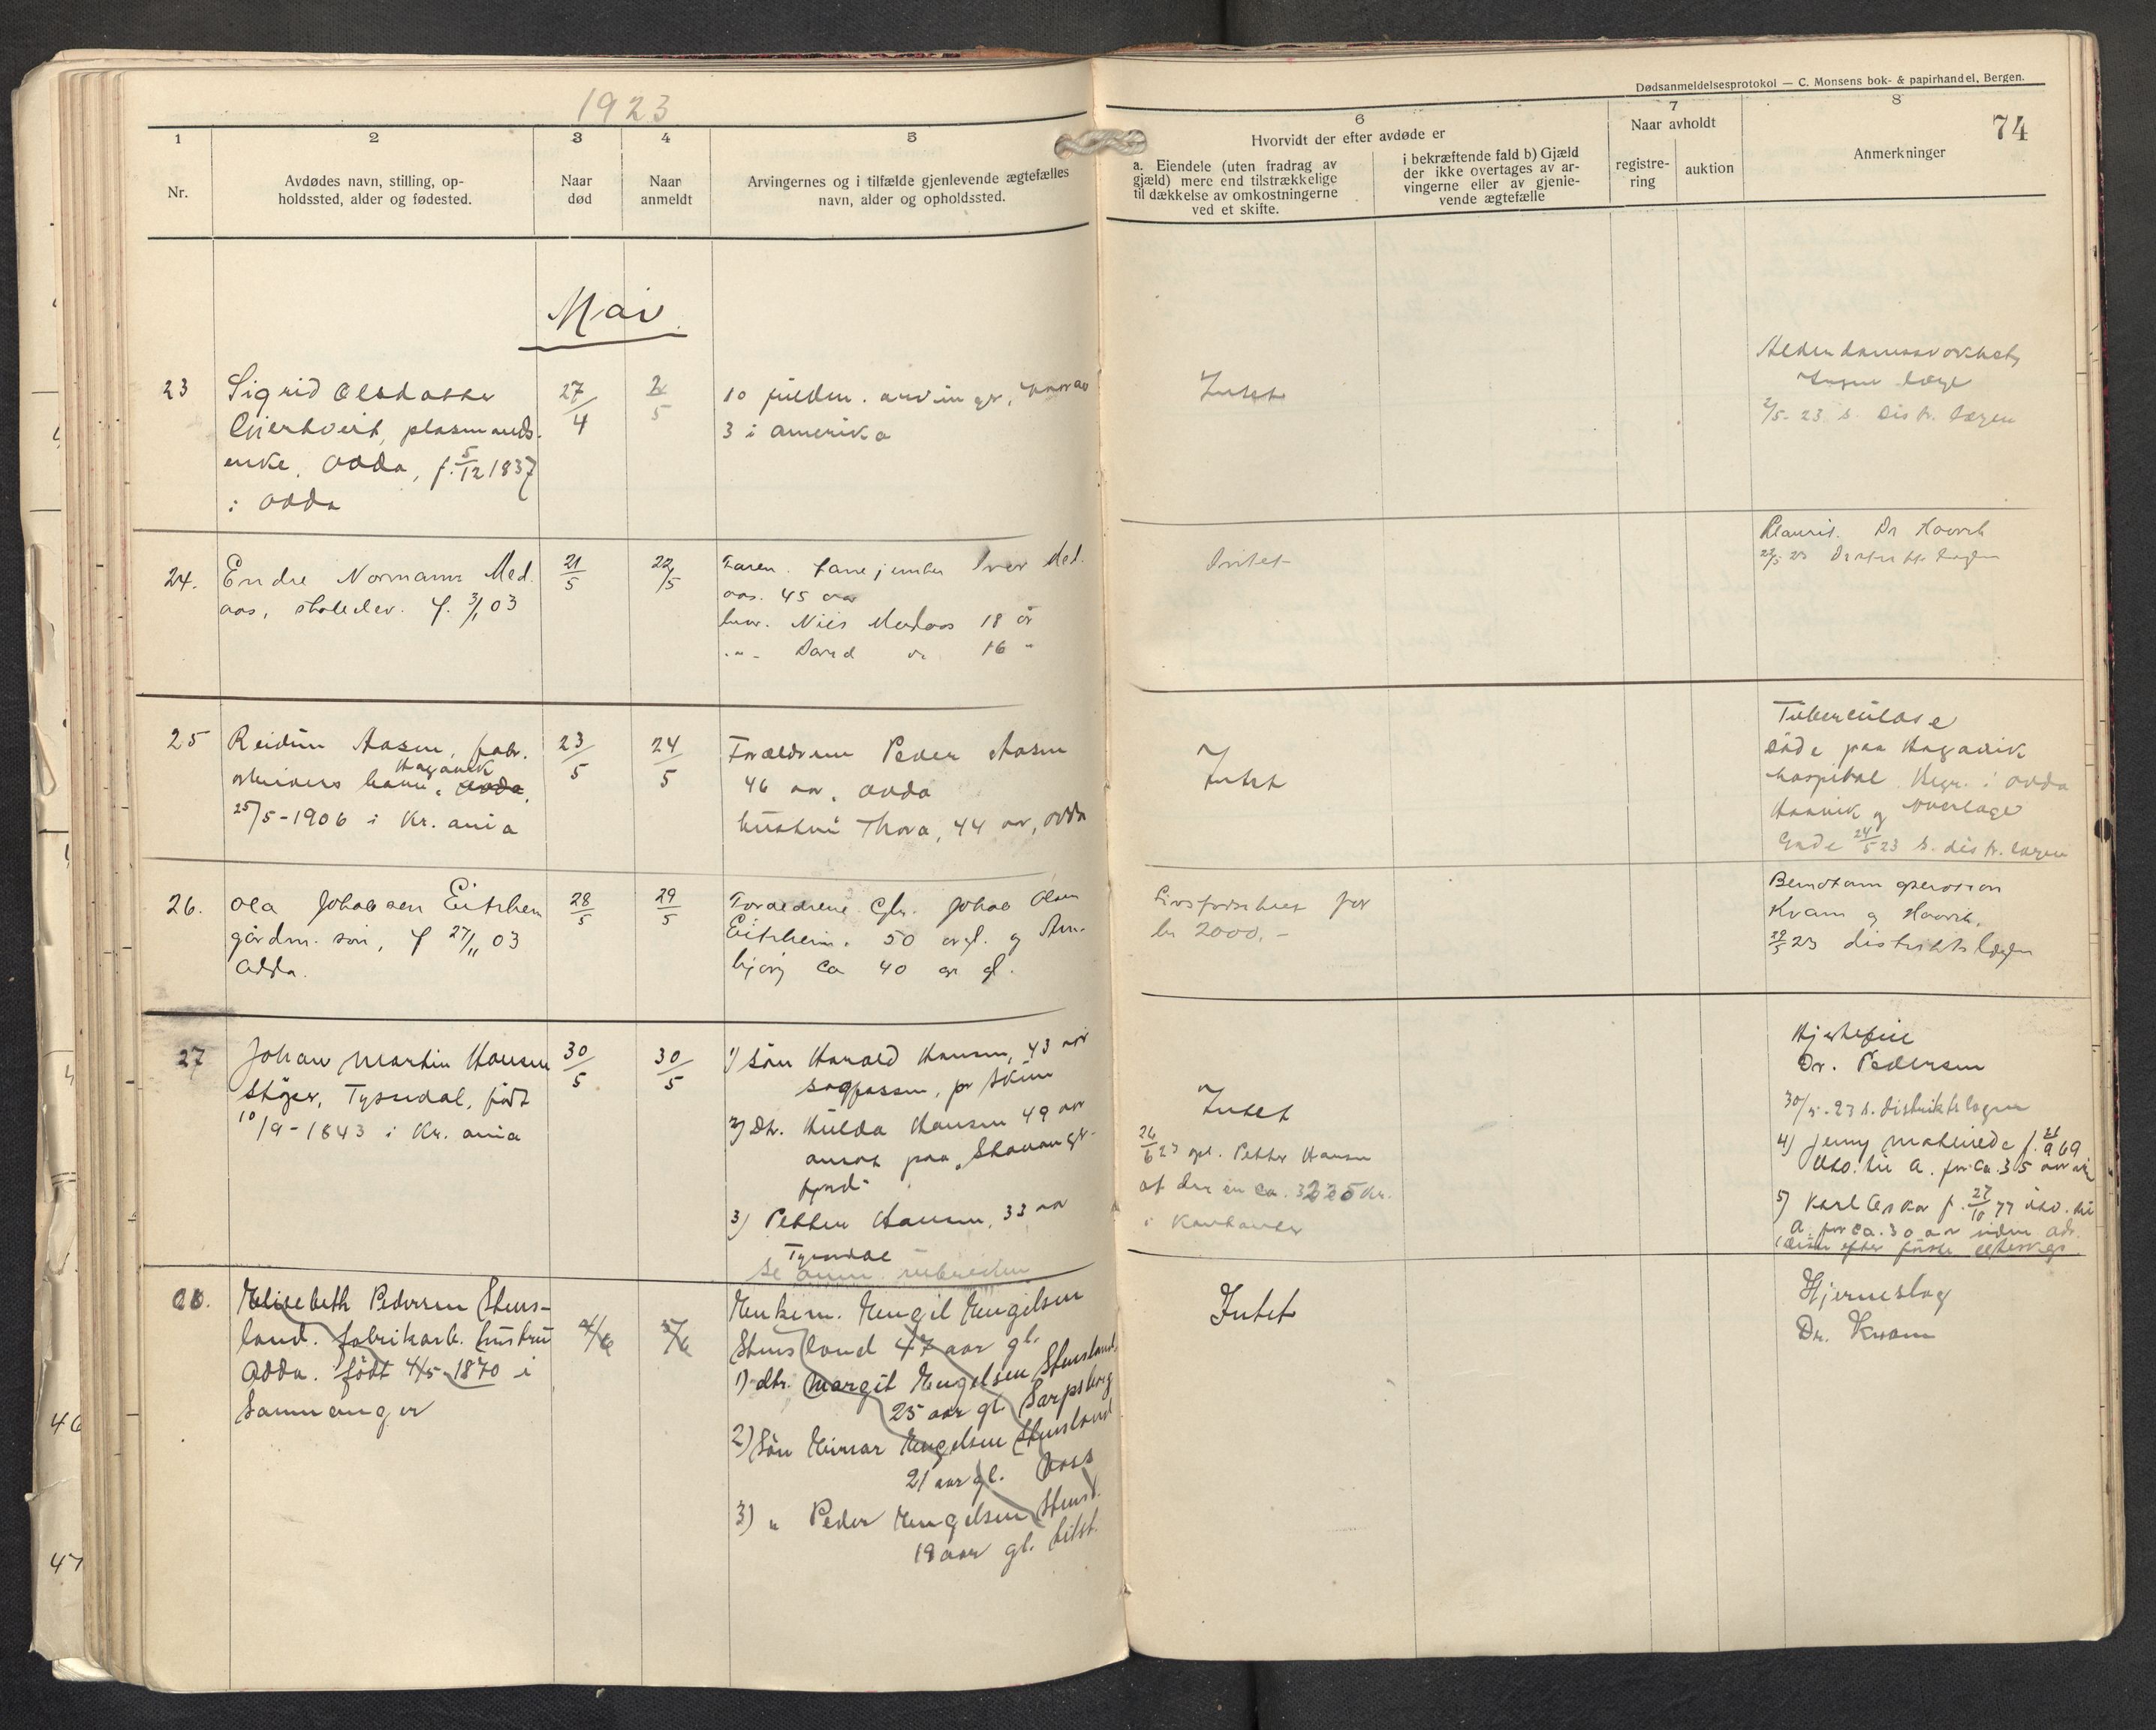 1923
Dødsanmeldelsesprotokol — C. Monsens bok- & papirhandel, Bergen.
74
1
2
3
4
5
6
7
8
Nr.
Avdødes navn, stilling, op-
holdssted, alder og fødested.
Naar
død
Naar
anmeldt
Arvingernes og i tilfælde gjenlevende ægtefælles
navn, alder og opholdssted.
Hvorvidt der efter avdøde er
a. Eiendele (uten fradrag av
gjæld) mere end tilstrækkelige
til dækkelse av omkostningerne
ved et skifte.
i bekræftende fald b) Gjæld
der ikke overtages av ar-
vingerne eller av gjenle-
vende ægtefælle
Naar avholdt
registre-
ring
auktion
Anmerkninger
Mai
23
Sigrid Olsdatter
plasmands-
enke, Odda, f. 5/12 1837
i Odda
27/4
2/5
10 arvinger, hvorav
3 i amerika
Intet
2/5-23 s. distr. lægen
24.
Endre Normann Med
aas, f. 3/1 03
21/5
22/5
Faren. Iver Med
aas. 45 aar
Nils Medaas 18 år
-"- David do 16 "
Intet
Dr Haavik
22/5 23 Distriktslægen
25
Reidun Aasen, fabr.
Hagavik
arbeiders barn, Odda,
25/5-1906 i Kr.ania
23/5
24/5
Forældrene Peder Aasen
46 aar, Odda
hustru Thora, 44 aar, Odda
Intet
Tuberculose
døde paa Hagavik
hospital. Begr. i Odda
Haavik og overlæge
Gade 24/5 23 s. distr. lægen
26.
Ola Johansen Eitrheim
gårdm. søn, f 27/11 03
Odda.
28/5
29/5
Forældrene Gbr. Johan Olsen
Eitrheim. 50 år gl. og Am-
bjørg ca 40 år gl.
Livsforsikret for
kr 2000.-
Blindtarm operation
Kvam og Haavik.
29/5 23 distriktslægen
27
Johan Martin Hansen
Tyssedal, født
10/9-1843 i Kr.ania
30/5
30/5
1) søn Harald Hansen, 43 aar
pr Skien
2) Dtr. Hulda Hansen 49 aar
ansat paa "Stavanger-
fjord"
3) Petter Hansen, 33 aar
Tyssedal
se anm. rubrikken
Intet
26/6 23 opl. Petter Hansen
at der er ca. 3225 kr.
i kontanter
Hjertefeil
Dr. Pedersen
30/5-23 s. distriktslægen
4) Jenny Mathilde f. 21/9 69
utv. til A. for ca. 35 aar
5) Karl Oskar f. 27/10 77 utv. til
A. for ca. 30 aar uden adr.
28.
Elisebeth Pedersen Stens-
land. fabrikarb. hustru
Odda. født 4/5-1870 i
Samnanger
4/6
5/6
Enkem. Engel Engelsen
Stensland 47 aar gl.
1) dtr. Margit Engelsen Stensland
25 aar gl. Sarpsborg
2) Søn Einar Engelsen Stensland
21 aar gl. Voss
3) " Peder Engelsen Stensl.
19 aar gl.
Intet
Hjerneslag
Dr. Kvam
46
47